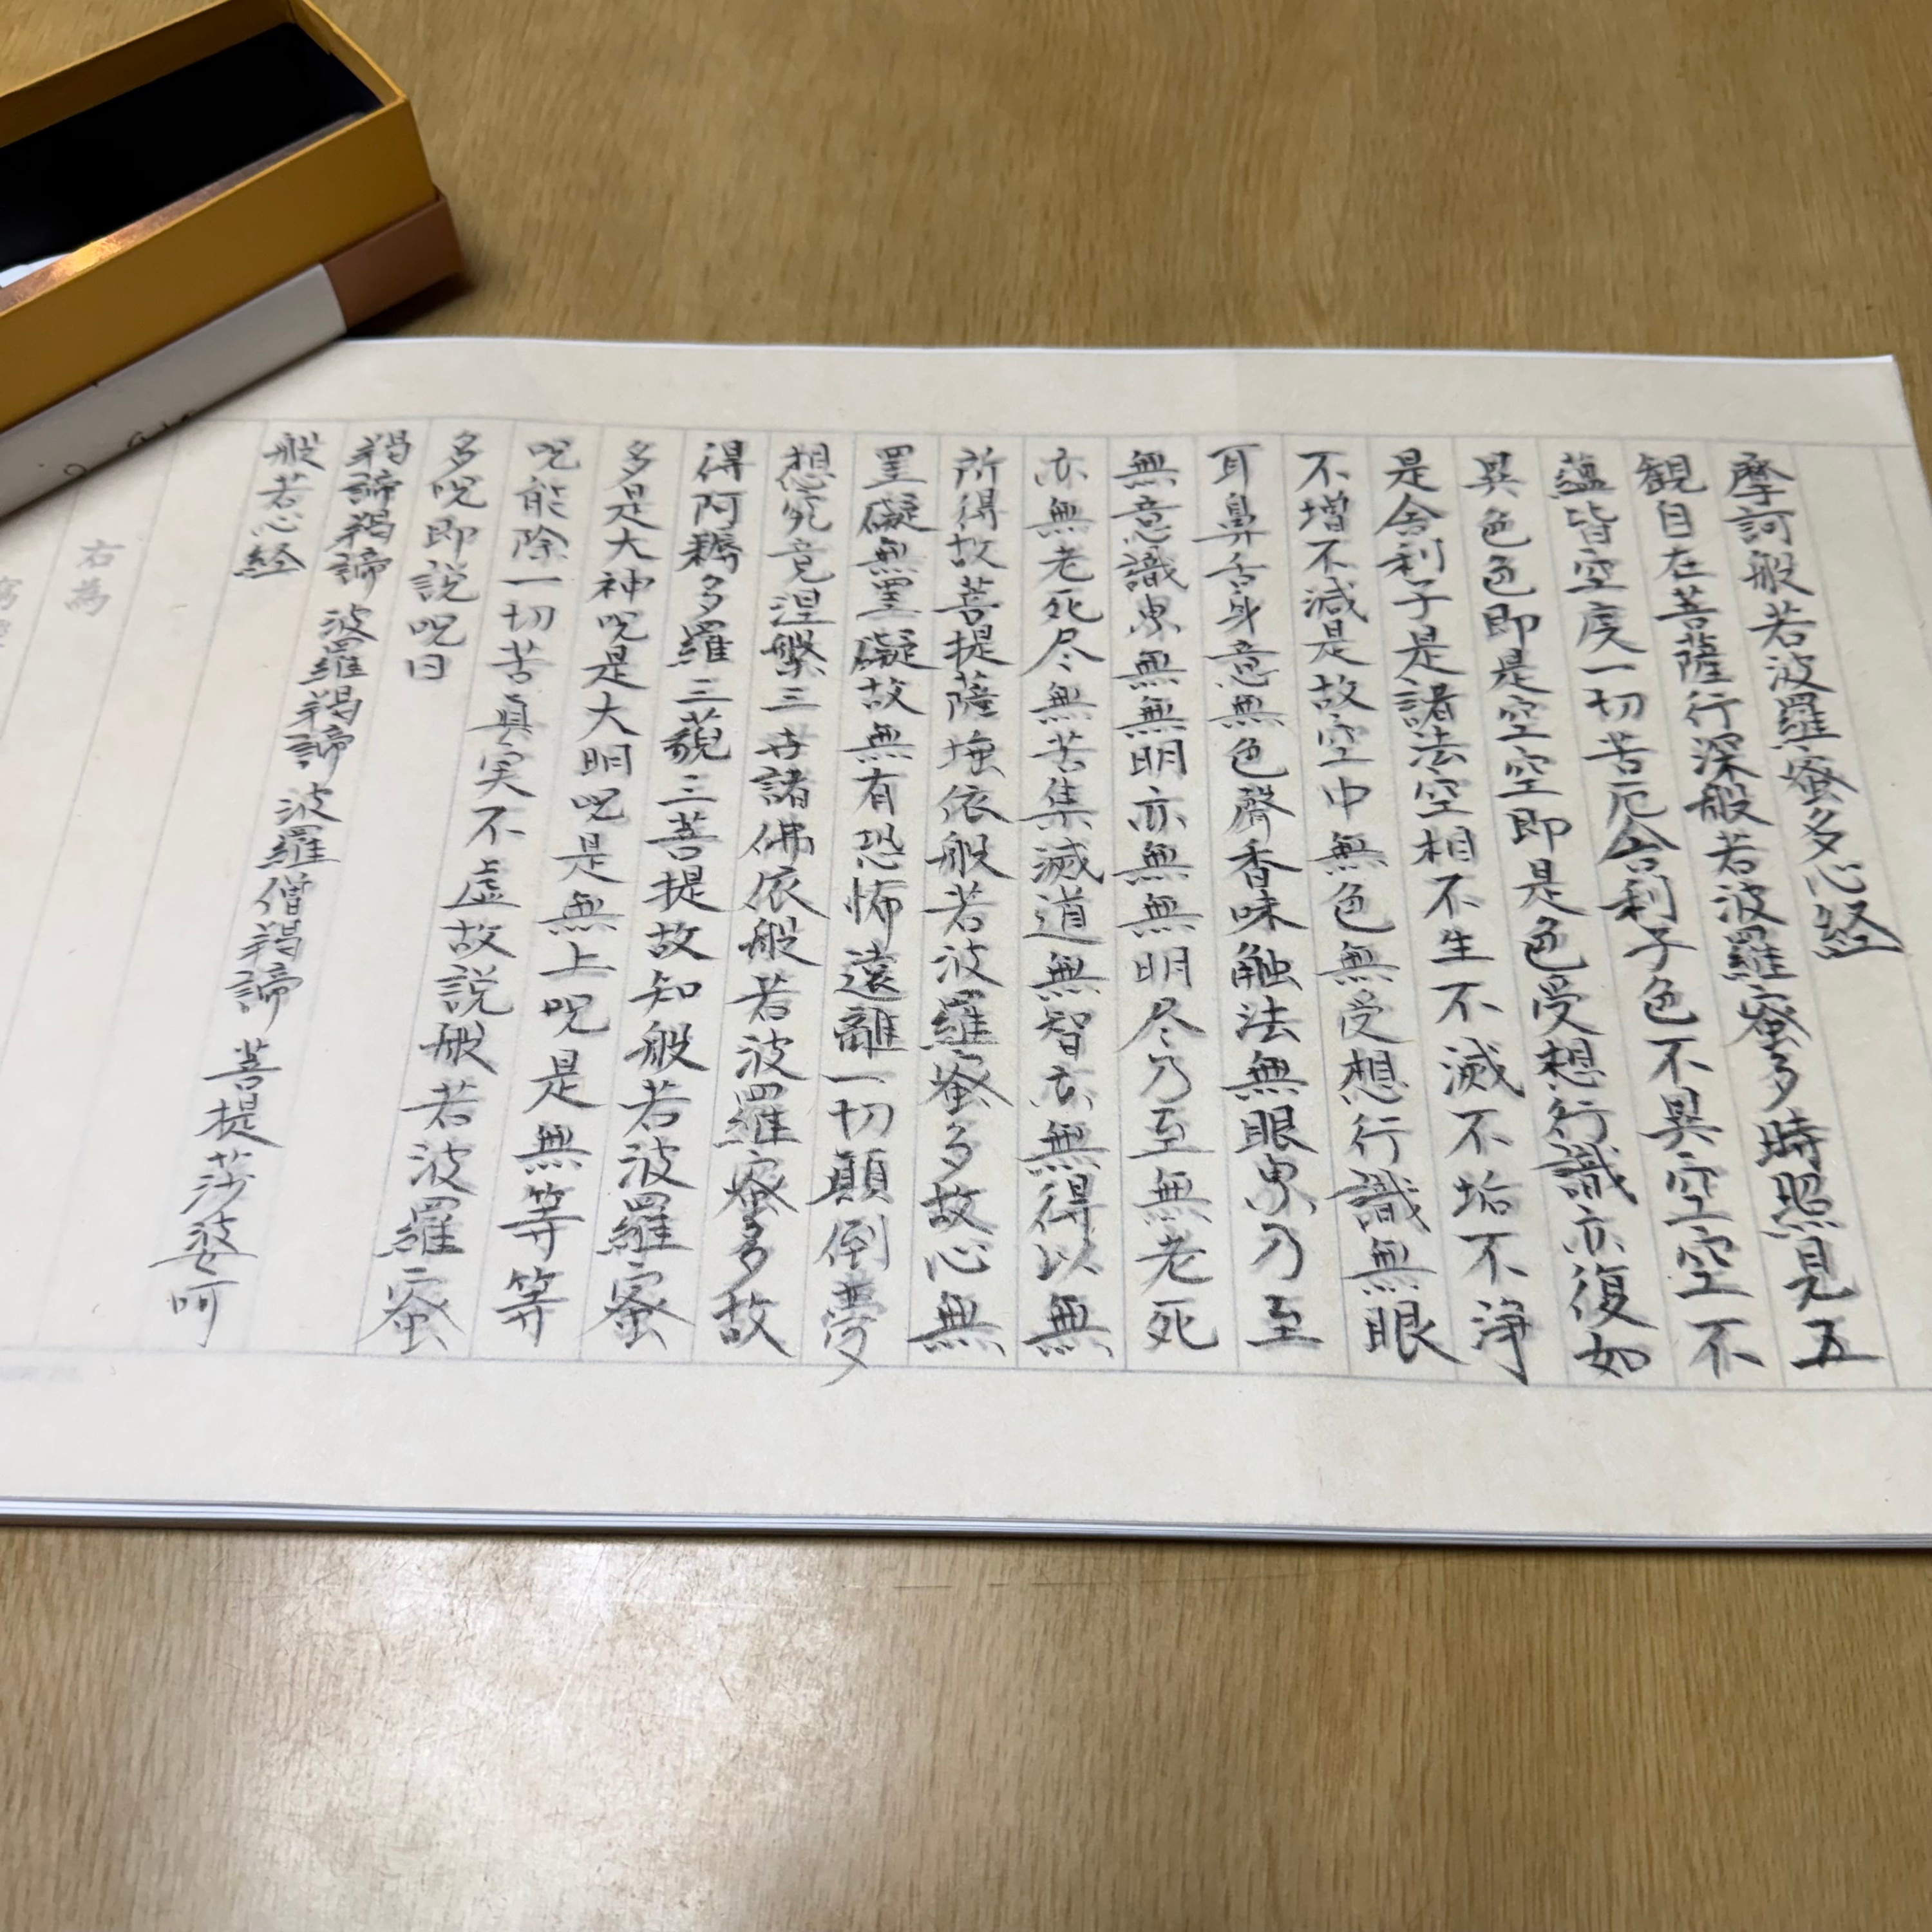 摩訶般若波羅蜜多心経
観自在菩薩行深般若波羅蜜多時照見五
蘊皆空度一切苦厄舎利子色不異空空不
異色色即是空空即是色受想行識亦復如
是舎利子是諸法空相不生不滅不垢不浄
不増不減是故空中無色無受想行識無眼
耳鼻舌身意無色聲香味触法無眼界乃至
無意識界無無明亦無無明尽乃至無老死
亦無老死尽無苦集滅道無智亦無得以無
所得故菩提薩埵依般若波羅蜜多故心無
罣礙無罣礙故無有恐怖遠離一切顛倒夢
想究竟涅槃三世諸佛依般若波羅蜜多故
得阿耨多羅三藐三菩提故知般若波羅蜜
多是大神呪是大明呪是無上呪是無等等
呪能除一切苦真実不虚故説般若波羅蜜
多呪即説呪曰
羯諦羯諦 波羅羯諦 波羅僧羯諦 菩提莎婆呵
般若心経
右為